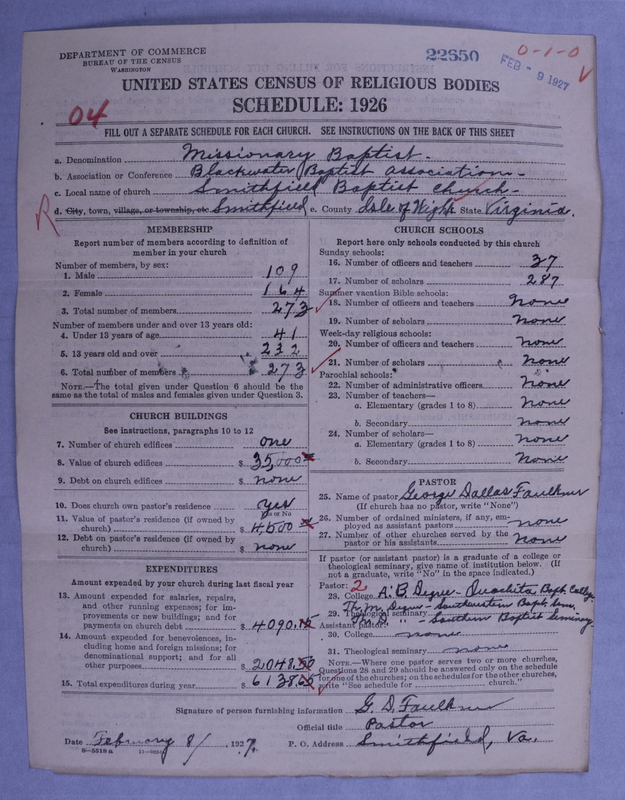 DEPARTMENT OF COMMERCE
BUREAU OF THE CENSUS
WASHINGTON
22650
FEB - 9 1927
0-1-0
UNITED STATES CENSUS OF RELIGIOUS BODIES
SCHEDULE: 1926
04
FILL OUT A SEPARATE SCHEDULE FOR EACH CHURCH. SEE INSTRUCTIONS ON THE BACK OF THIS SHEET
a. Denomination Missionary Baptist.
b. Association or Conference Blackwater Baptist association.
c. Local name of church Smithfield Baptist church.
R
d. City, town, village, or township, etc Smithfield e. County Isle of Wight State Virginia.
MEMBERSHIP
Report number of members according to definition of
member in your church
Number of members, by sex:
1. Male 109
2. Female 164
3. Total number of members 273
Number of members under and over 13 years old:
4. Under 13 years of age 41
5. 13 years old and over 232
6. Total number of members 273
NOTE.—The total given under Question 6 should be the
same as the total of males and females given under Question 3.
CHURCH BUILDINGS
See instructions, paragraphs 10 to 12
7. Number of church edifices one
8. Value of church edifices $ 35,000
9. Debt on church edifices $ none
10. Does church own pastor's residence yes
Yes or No
11. Value of pastor's residence (if owned by
church) $ 4,500
12. Debt on pastor's residence (if owned by
church) $ none
EXPENDITURES
Amount expended by church during last fiscal year
13. Amount expended for salaries, repairs,
and other running expenses; for im-
provements or new buildings; and for
payments on church debt $ 4090.15
14. Amount expended for benevolences, in-
cluding home and foreign missions; for
denominational support; and for all
other purposes $ 2048.50
15. Total expenditures during year $ 6138.65
CHURCH SCHOOLS
Report here only schools conducted by this church
Sunday schools:
16. Number of officers and teachers 37
17. Number of scholars 287
Summer vacation Bible schools:
18. Number of officers and teachers none
19. Number of scholars none
Week-day religious schools:
20. Number of officers and teachers none
21. Number of scholars none
Parochial schools:
22. Number of administrative officers none
23. Number of teachers—
a. Elementary (grades 1 to 8) none
b. Secondary none
24. Number of scholars—
a. Elementary (grades 1 to 8) none
b. Secondary none
PASTOR
25. Name of pastor George Dallas Faulkner
(If church has no pastor, write "None")
26. Number of ordained ministers, if any, em-
ployed as assistant pastors none
27. Number of other churches served by the
pastor or his assistants none
If pastor (or assistant pastor) is a graduate of a college or
theological seminary, give name of institution below. (If
not a graduate, write "No" in the space indicated.)
Pastor: 2
28. College A.B Degree - Ouachita Bapt. College
Th. M. Degree - Southwestern Bapt. Sem.
29. Theological seminary
Th. D. " - Southern Baptist Seminary
Assistant pastor:
30. College none
31. Theological seminary none
NOTE.—Where one pastor serves two or more churches,
Questions 28 and 29 should be answered only on the schedule
for one of the churches; on the schedules for the other churches,
write "See schedule for church."
Signature of person furnishing information G. D. Faulkner
Official title Pastor
Date February 8/, 1927. P. O. Address Smithfield, Va.